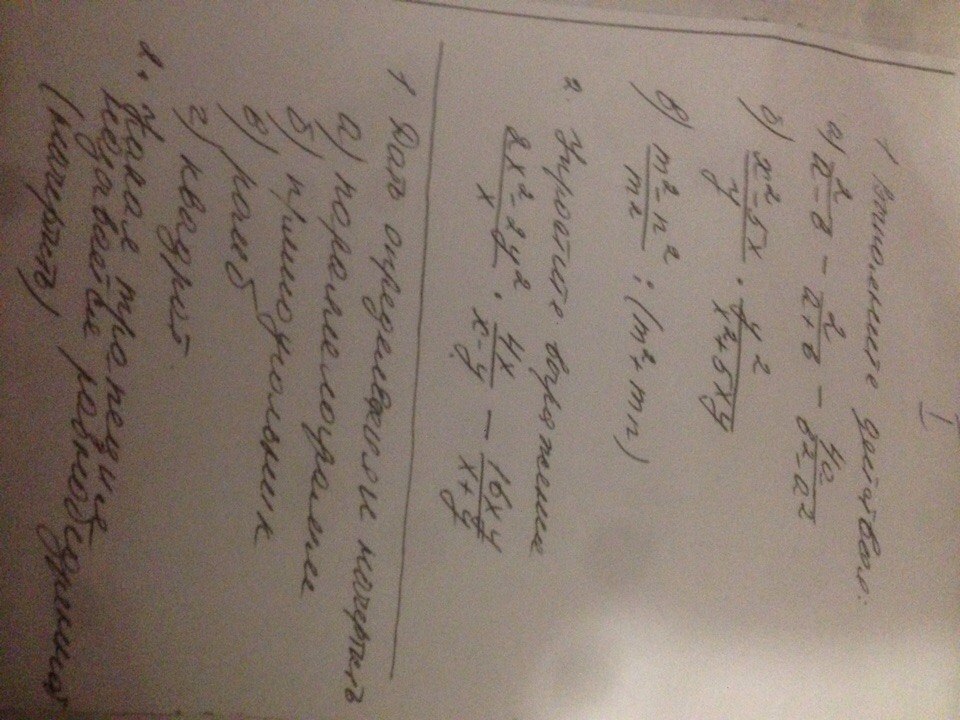 I
1 Выполните действия:
а) 2/(а-в) - 2/(а+в) - 4а/(в²-а²)
б) (x²-5x)/y · y²/(x²+5xy)
в) (m²-n²)/m² : (m²+mn)
2. Упростите выражение
(2x²-2y²)/x · 4x/(x-y) - 16xy/(x+y)
1 Дать определение и начертить
а) параллелограмм
б) прямоугольник
в) ромб
г) квадрат
2. Какая трапеция
называется равнобедренная
(начертить)